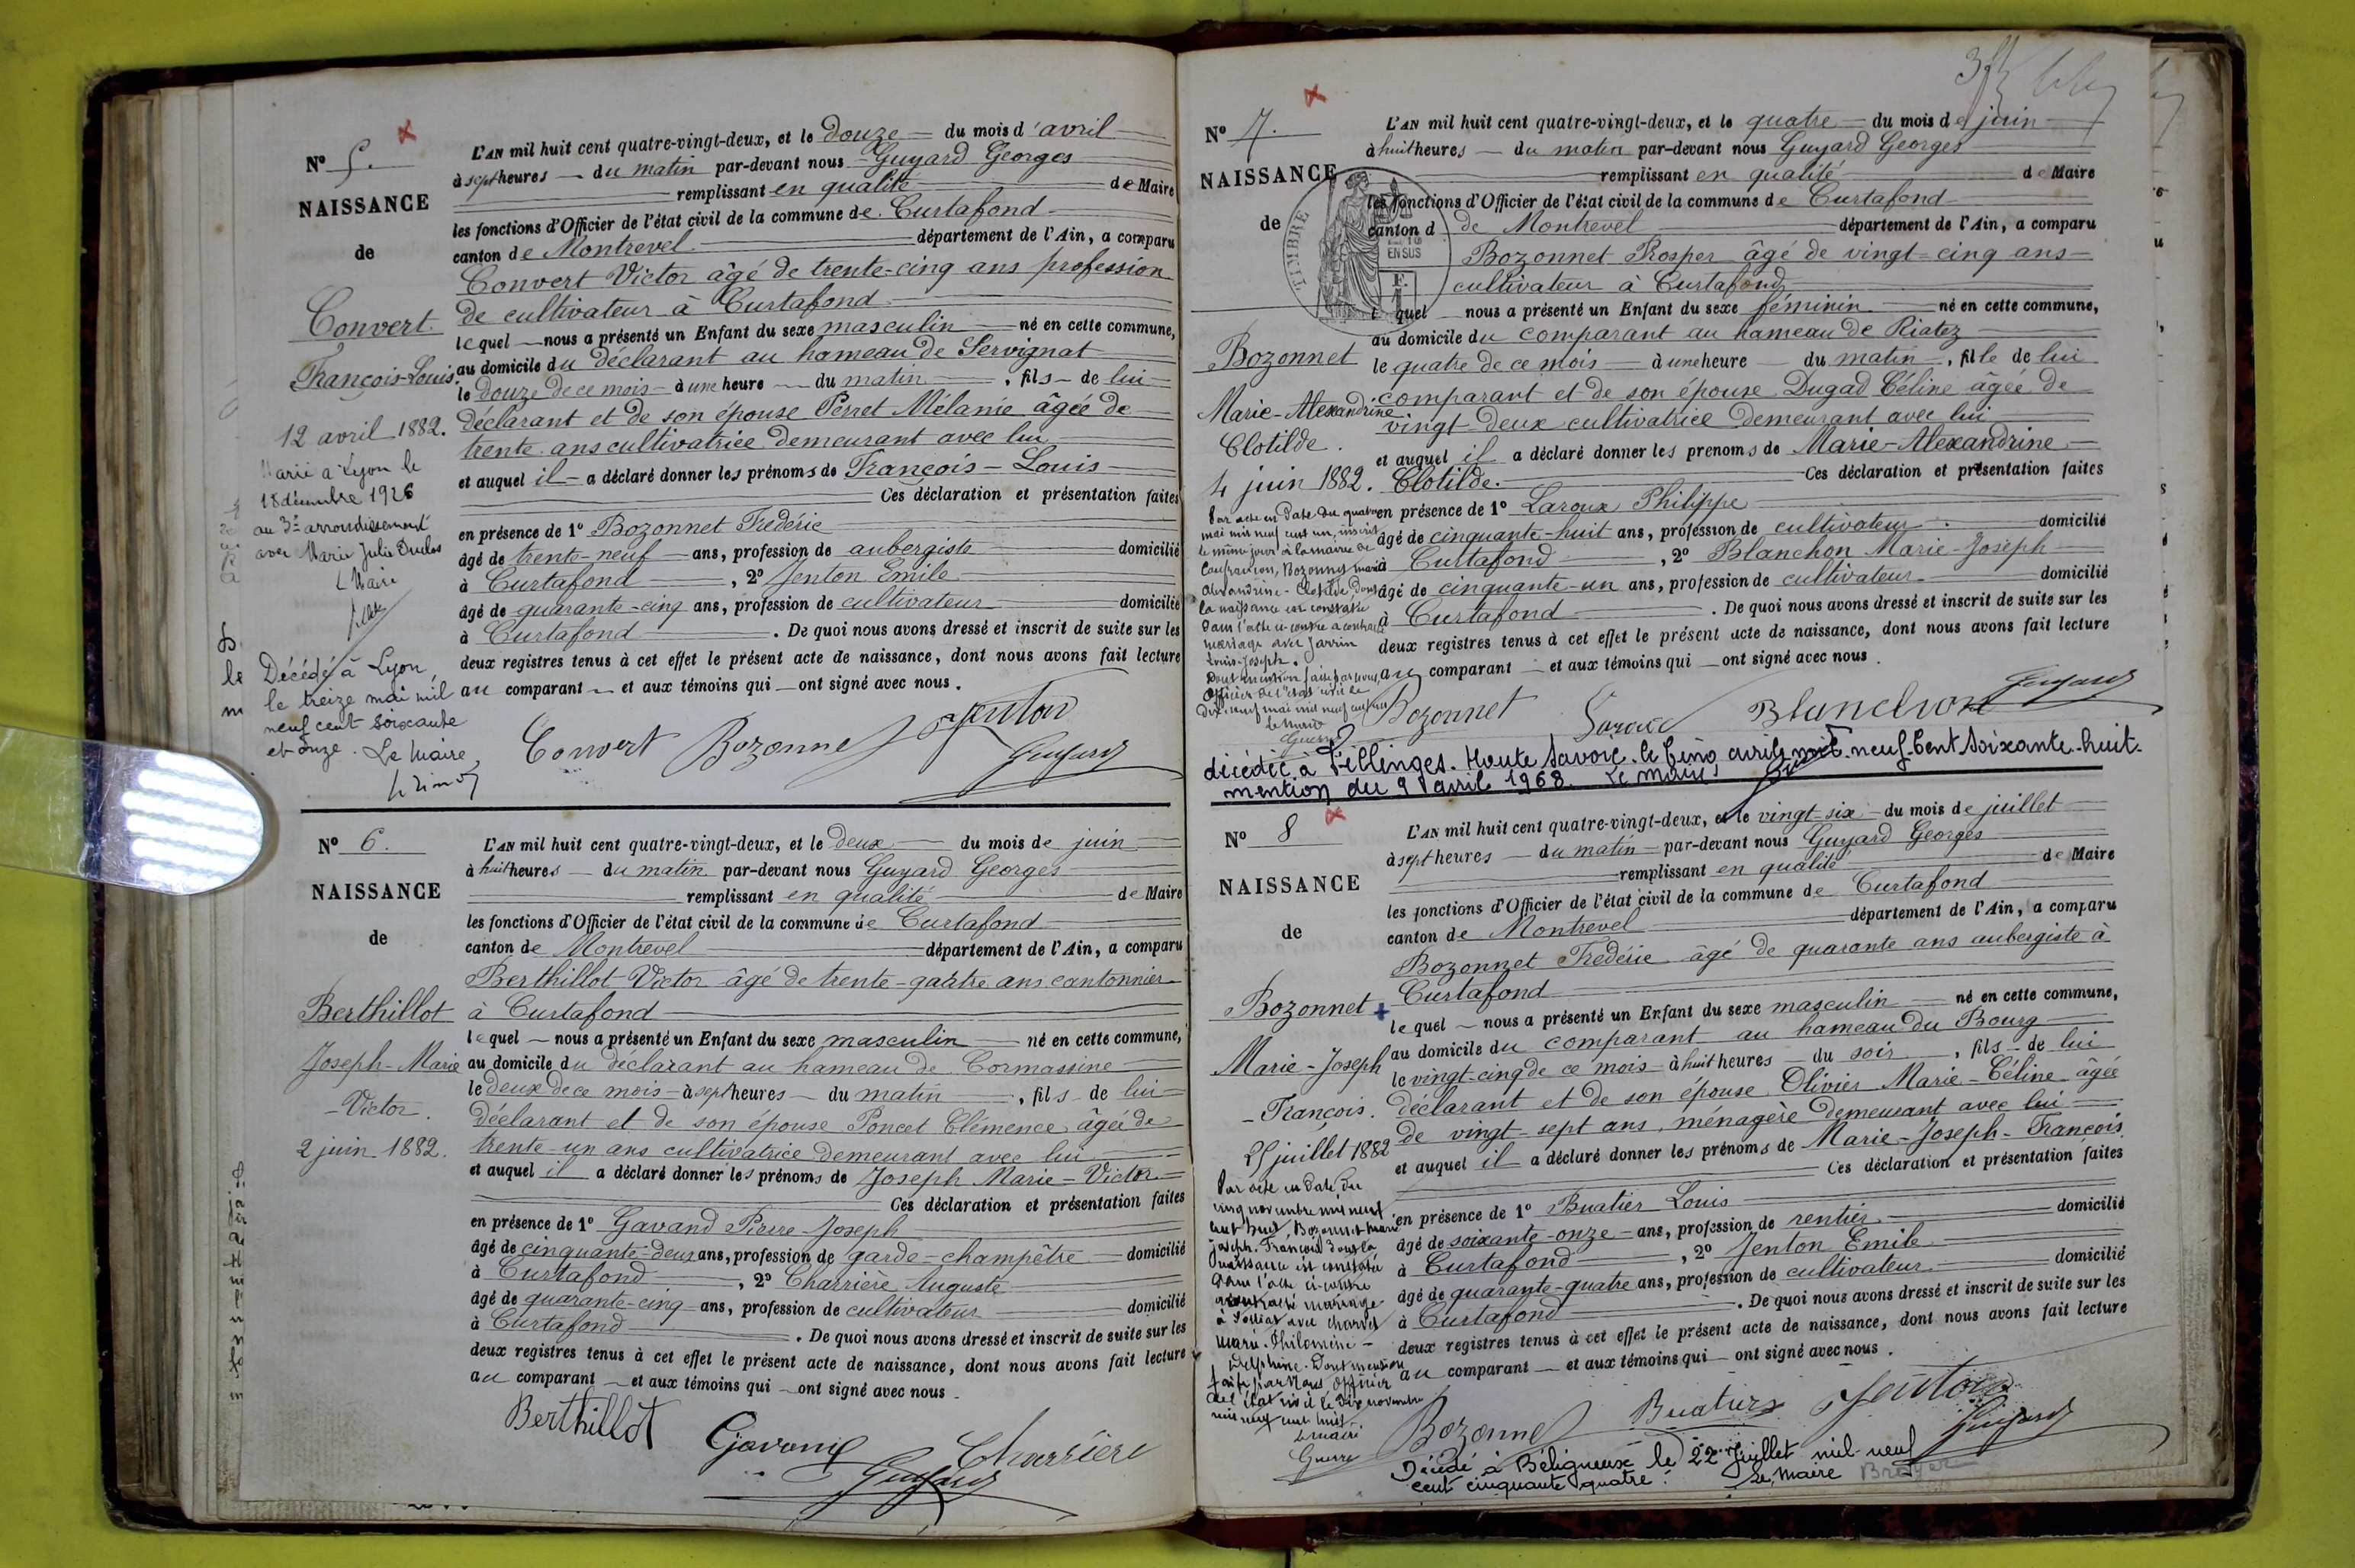 N° 5.
NAISSANCE
de
Convert
François-Louis.
12 avril 1882.
Marié à Lyon le
18 décembre 1926
au 3e arrondissement
avec Marie Julie
Le Maire
Décédé à Lyon,
le treize mai mil
neuf cent soixante
et onze. Le Maire,
L'AN mil huit cent quatre-vingt-deux, et le douze du mois d'avril
à sept heures du matin par-devant nous Guyard Georges
remplissant en qualité de Maire
les fonctions d'Officier de l'état civil de la commune de Curtafond
canton de Montrevel département de l'Ain, a comparu
Convert Victor âgé de trente-cinq ans profession
de cultivateur à Curtafond
lequel nous a présenté un Enfant du sexe masculin né en cette commune,
au domicile du déclarant au hameau de Servignat
le douze de ce mois à une heure du matin, fils de lui
déclarant et de son épouse Perret Mélanie âgée de
trente ans cultivatrice demeurant avec lui
et auquel il a déclaré donner les prénoms de François-Louis
Ces déclaration et présentation faites
en présence de 1° Bozonnet Frédéric
âgé de trente-neuf ans, profession de aubergiste domicilié
à Curtafond, 2° Jenton Emile
âgé de quarante-cinq ans, profession de cultivateur domicilié
à Curtafond. De quoi nous avons dressé et inscrit de suite sur les
deux registres tenus à cet effet le présent acte de naissance, dont nous avons fait lecture
au comparant et aux témoins qui ont signé avec nous.
Convert Bozonnet Jenton
Guyard
N° 6.
NAISSANCE
de
Berthillot
Joseph-Marie
-Victor.
2 juin 1882.
L'AN mil huit cent quatre-vingt-deux, et le deux du mois de juin
à huit heures du matin par-devant nous Guyard Georges
remplissant en qualité de Maire
les fonctions d'Officier de l'état civil de la commune de Curtafond
canton de Montrevel département de l'Ain, a comparu
Berthillot Victor âgé de trente-quatre ans cantonnier
à Curtafond
lequel nous a présenté un Enfant du sexe masculin né en cette commune,
au domicile du déclarant au hameau de Cormassine
le deux de ce mois à sept heures du matin, fils de lui
déclarant et de son épouse Poncet Clémence âgée de
trente-un ans cultivatrice demeurant avec lui
et auquel il a déclaré donner les prénoms de Joseph Marie-Victor
Ces déclaration et présentation faites
en présence de 1° Gavand Pierre-Joseph
âgé de cinquante-deux ans, profession de garde-champêtre domicilié
à Curtafond, 2° Charrière Auguste
âgé de quarante-cinq ans, profession de cultivateur domicilié
à Curtafond. De quoi nous avons dressé et inscrit de suite sur les
deux registres tenus à cet effet le présent acte de naissance, dont nous avons fait lecture
au comparant et aux témoins qui ont signé avec nous.
Berthillot Gavand Charrière
Guyard
N° 7.
NAISSANCE
de
TIMBRE
EN SUS
Bozonnet
Marie-Alexandrine
Clotilde.
4 juin 1882.
Par acte en date du quatre
mai mil neuf cent un, inscrit
le même jour à la mairie de
Confrançon, Bozonnet Marie
Alexandrine-Clotilde, dont
la naissance est constatée
dans l'acte ci-contre a contracté
mariage avec Jarrin
Louis-Joseph.
Dont mention faite par nous,
Officier de l'état civil le
dix-neuf mai mil neuf cent un
Le Maire
Guerre
L'AN mil huit cent quatre-vingt-deux, et le quatre du mois de juin
à huit heures du matin par-devant nous Guyard Georges
remplissant en qualité de Maire
les fonctions d'Officier de l'état civil de la commune de Curtafond
canton d de Montrevel département de l'Ain, a comparu
Bozonnet Prosper âgé de vingt-cinq ans
cultivateur à Curtafond
lequel nous a présenté un Enfant du sexe féminin né en cette commune,
au domicile du comparant au hameau de Riatez
le quatre de ce mois à une heure du matin, fille de lui
comparant et de son épouse Dugad Céline âgée de
vingt-deux cultivatrice demeurant avec lui
et auquel il a déclaré donner les prénoms de Marie-Alexandrine
Clotilde. Ces déclaration et présentation faites
en présence de 1° Laroux Philippe
âgé de cinquante-huit ans, profession de cultivateur domicilié
à Curtafond, 2° Blanchon Marie-Joseph
âgé de cinquante-un ans, profession de cultivateur domicilié
à Curtafond. De quoi nous avons dressé et inscrit de suite sur les
deux registres tenus à cet effet le présent acte de naissance, dont nous avons fait lecture
au comparant et aux témoins qui ont signé avec nous.
Bozonnet Blanchon Guyard
décédée à Fillinges. Haute Savoie. le cinq avril mil neuf Cent Soixante-huit.
mention du 9 avril 1968. Le Maire
N° 8
NAISSANCE
de
Bozonnet
Marie-Joseph
-François.
25 juillet 1882
Par acte en date du
cinq novembre mil neuf
cent huit, Bozonnet Marie
Joseph-François dont la
naissance est constatée
dans l'acte ci-contre
a contracté mariage
à Polliat avec
Marie-Philomène-
Delphine. Dont mention
faite par nous Officier
de l'état civil le dix novembre
mil neuf cent huit.
Le Maire
Guerre
L'AN mil huit cent quatre-vingt-deux, et le vingt-six du mois de juillet
à sept heures du matin par-devant nous Guyard Georges
remplissant en qualité de Maire
les fonctions d'Officier de l'état civil de la commune de Curtafond
canton de Montrevel département de l'Ain, a comparu
Bozonnet Frédéric âgé de quarante ans aubergiste à
Curtafond
lequel nous a présenté un Enfant du sexe masculin né en cette commune,
au domicile du comparant au hameau du Bourg
le vingt-cinq de ce mois à huit heures du soir, fils de lui
déclarant et de son épouse Olivier Marie-Céline âgée
de vingt-sept ans, ménagère demeurant avec lui
et auquel il a déclaré donner les prénoms de Marie-Joseph-François
Ces déclaration et présentation faites
en présence de 1° Buatier Louis
âgé de soixante-onze ans, profession de rentier domicilié
à Curtafond, 2° Jenton Emile
âgé de quarante-quatre ans, profession de cultivateur domicilié
à Curtafond. De quoi nous avons dressé et inscrit de suite sur les
deux registres tenus à cet effet le présent acte de naissance, dont nous avons fait lecture
au comparant et aux témoins qui ont signé avec nous.
Bozonnet Buatier Jenton
Guyard
Décédé à Béligneux le 22 Juillet mil neuf
cent cinquante quatre. Le Maire